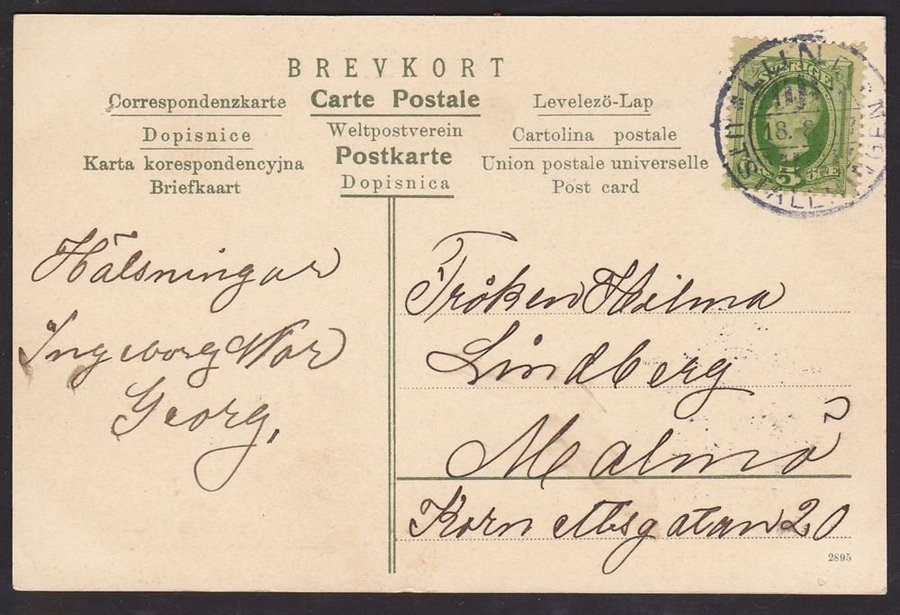 BREVKORT
Correspondenzkarte Carte Postale Levelezö-Lap
Dopisnice Weltpostverein Cartolina postale
Karta korespondencyjna Postkarte Union postale universelle
Briefkaart Dopisnica Post card
LUND
UTSTÄLLNINGEN
18. 8
SVERIGE
5 ÖRE
Hälsningar
Ingeborg
Georg,
Fröken Hilma
Lindberg
Malmö
Kornettsgatan 20
2895